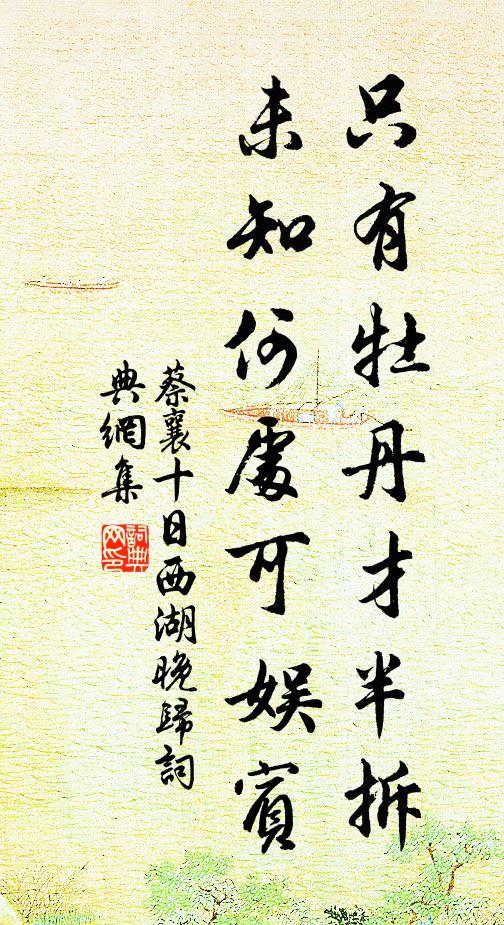 只有牡丹才半拆
未知何處可娛賓
蔡襄十日西湖晚歸詞
典網集
詞典
网印